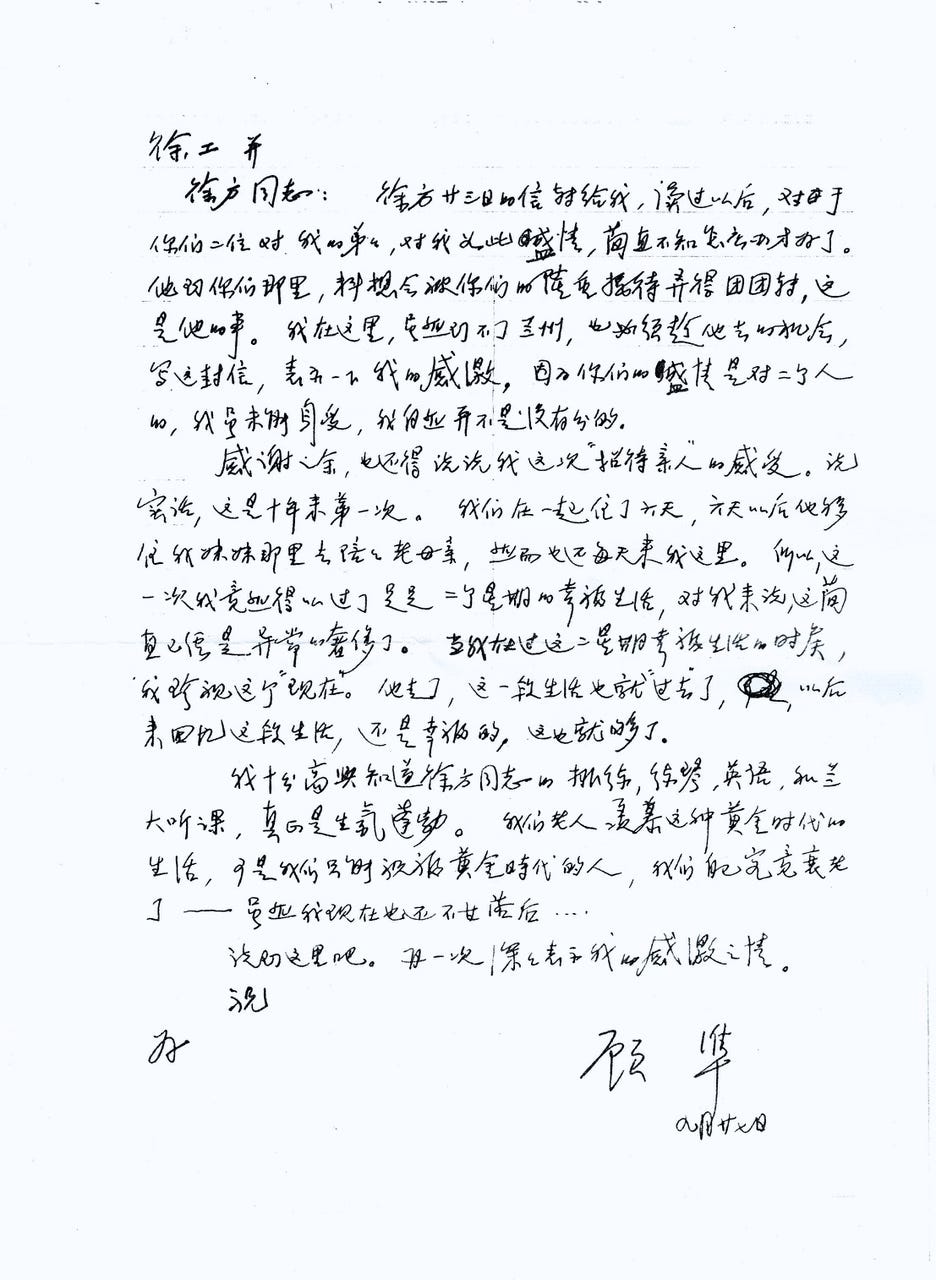 徐工并
徐方同志： 徐方廿三日的信转给我，读过以后，对于
你们二位对我的弟弟，对我如此盛情，简直不知怎么办才好了。
他到你们那里，料想会被你们的隆重接待弄得团团转，这
是他的事。 我在这里，虽然到不了兰州，也必须趁他去的机会，
写这封信，表示一下我的感激，因为你们的盛情是对二个人
的，我虽未能身受，我自然并不是没有分的。
感谢之余，也还得说说我这次“招待亲人”的感受。说
实话，这是十年来第一次。 我们在一起住了六天，六天以后他移
住我妹妹那里去陪陪老母亲，然而也还每天来我这里。 所以，这
一次我竟然得以过了足足二个星期的幸福生活，对我来说，这简
直已经是异常的奢侈了。 当我在过这二星期幸福生活的时候，
我珍视这个“现在”。 他走了，这一段生活也就“过去”了， 以后
来回忆这段生活，还是幸福的，这也就够了。
我十分高兴知道徐方同志的排练，练琴，英语，和兰
大听课，真正是生氣蓬勃。 我们老人羡慕这种黄金时代的
生活，于是我们只能祝福黄金時代的人，我们自己究竟衰老
了——虽然我现在也还不甘落后····
说到这里吧。再一次深深表示我的感激之情。
祝
好
顾準
九月廿七日